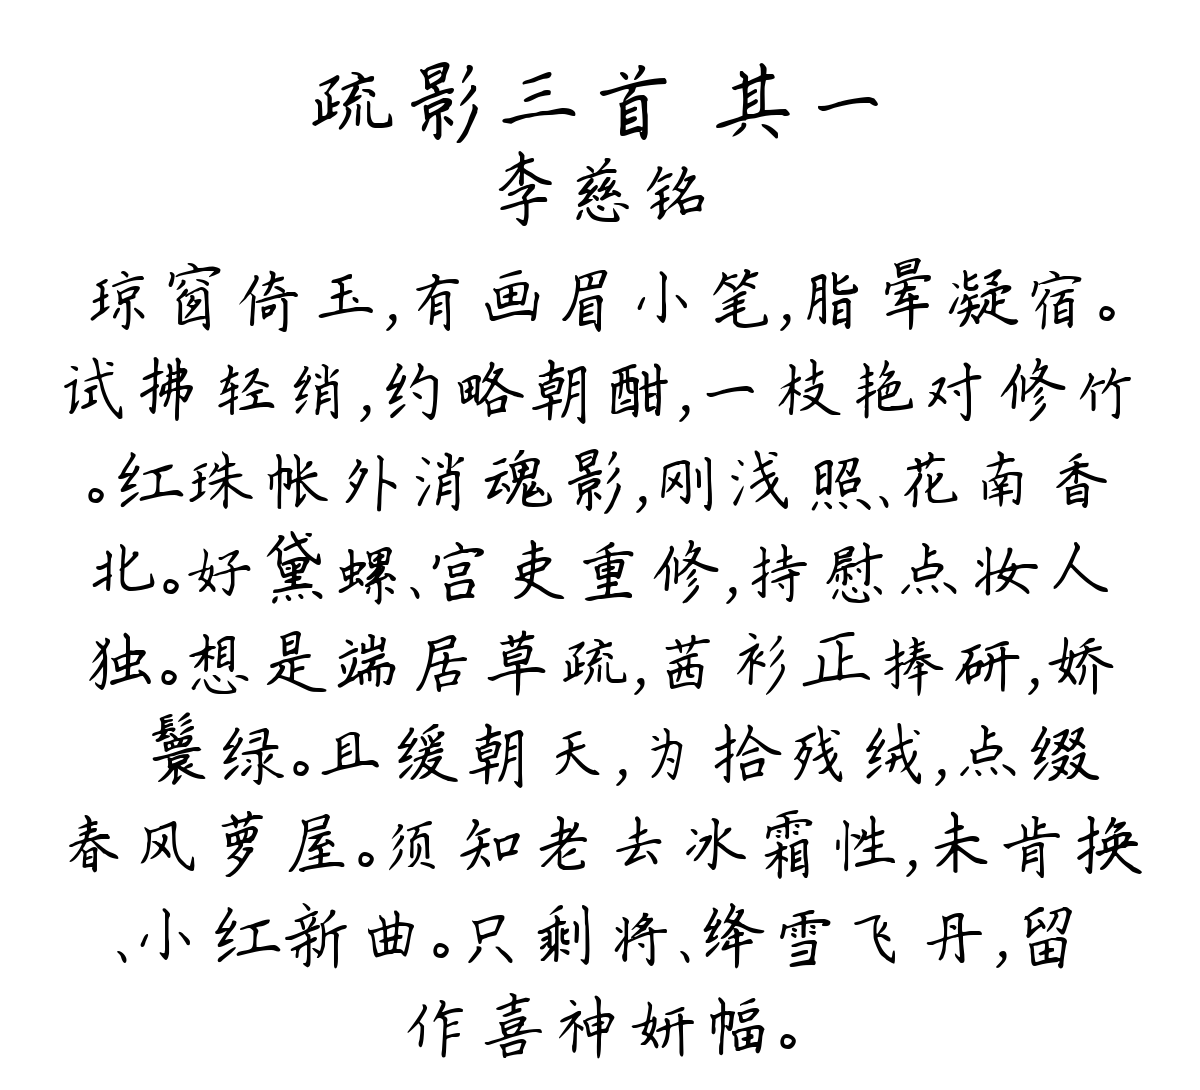 疏影三首 其一
李慈铭
琼窗倚玉,有画眉小笔,脂晕凝宿。
试拂轻绡,约略朝酣,一枝艳对修竹
。红珠帐外消魂影,刚浅照、花南香
北。好黛螺、宫吏重修,持慰点妆人
独。想是端居草疏,茜衫正捧研,娇
鬟绿。且缓朝天,为拾残绒,点缀
春风萝屋。须知老去冰霜性,未肯换
、小红新曲。只剩将、绛雪飞丹,留
作喜神妍幅。